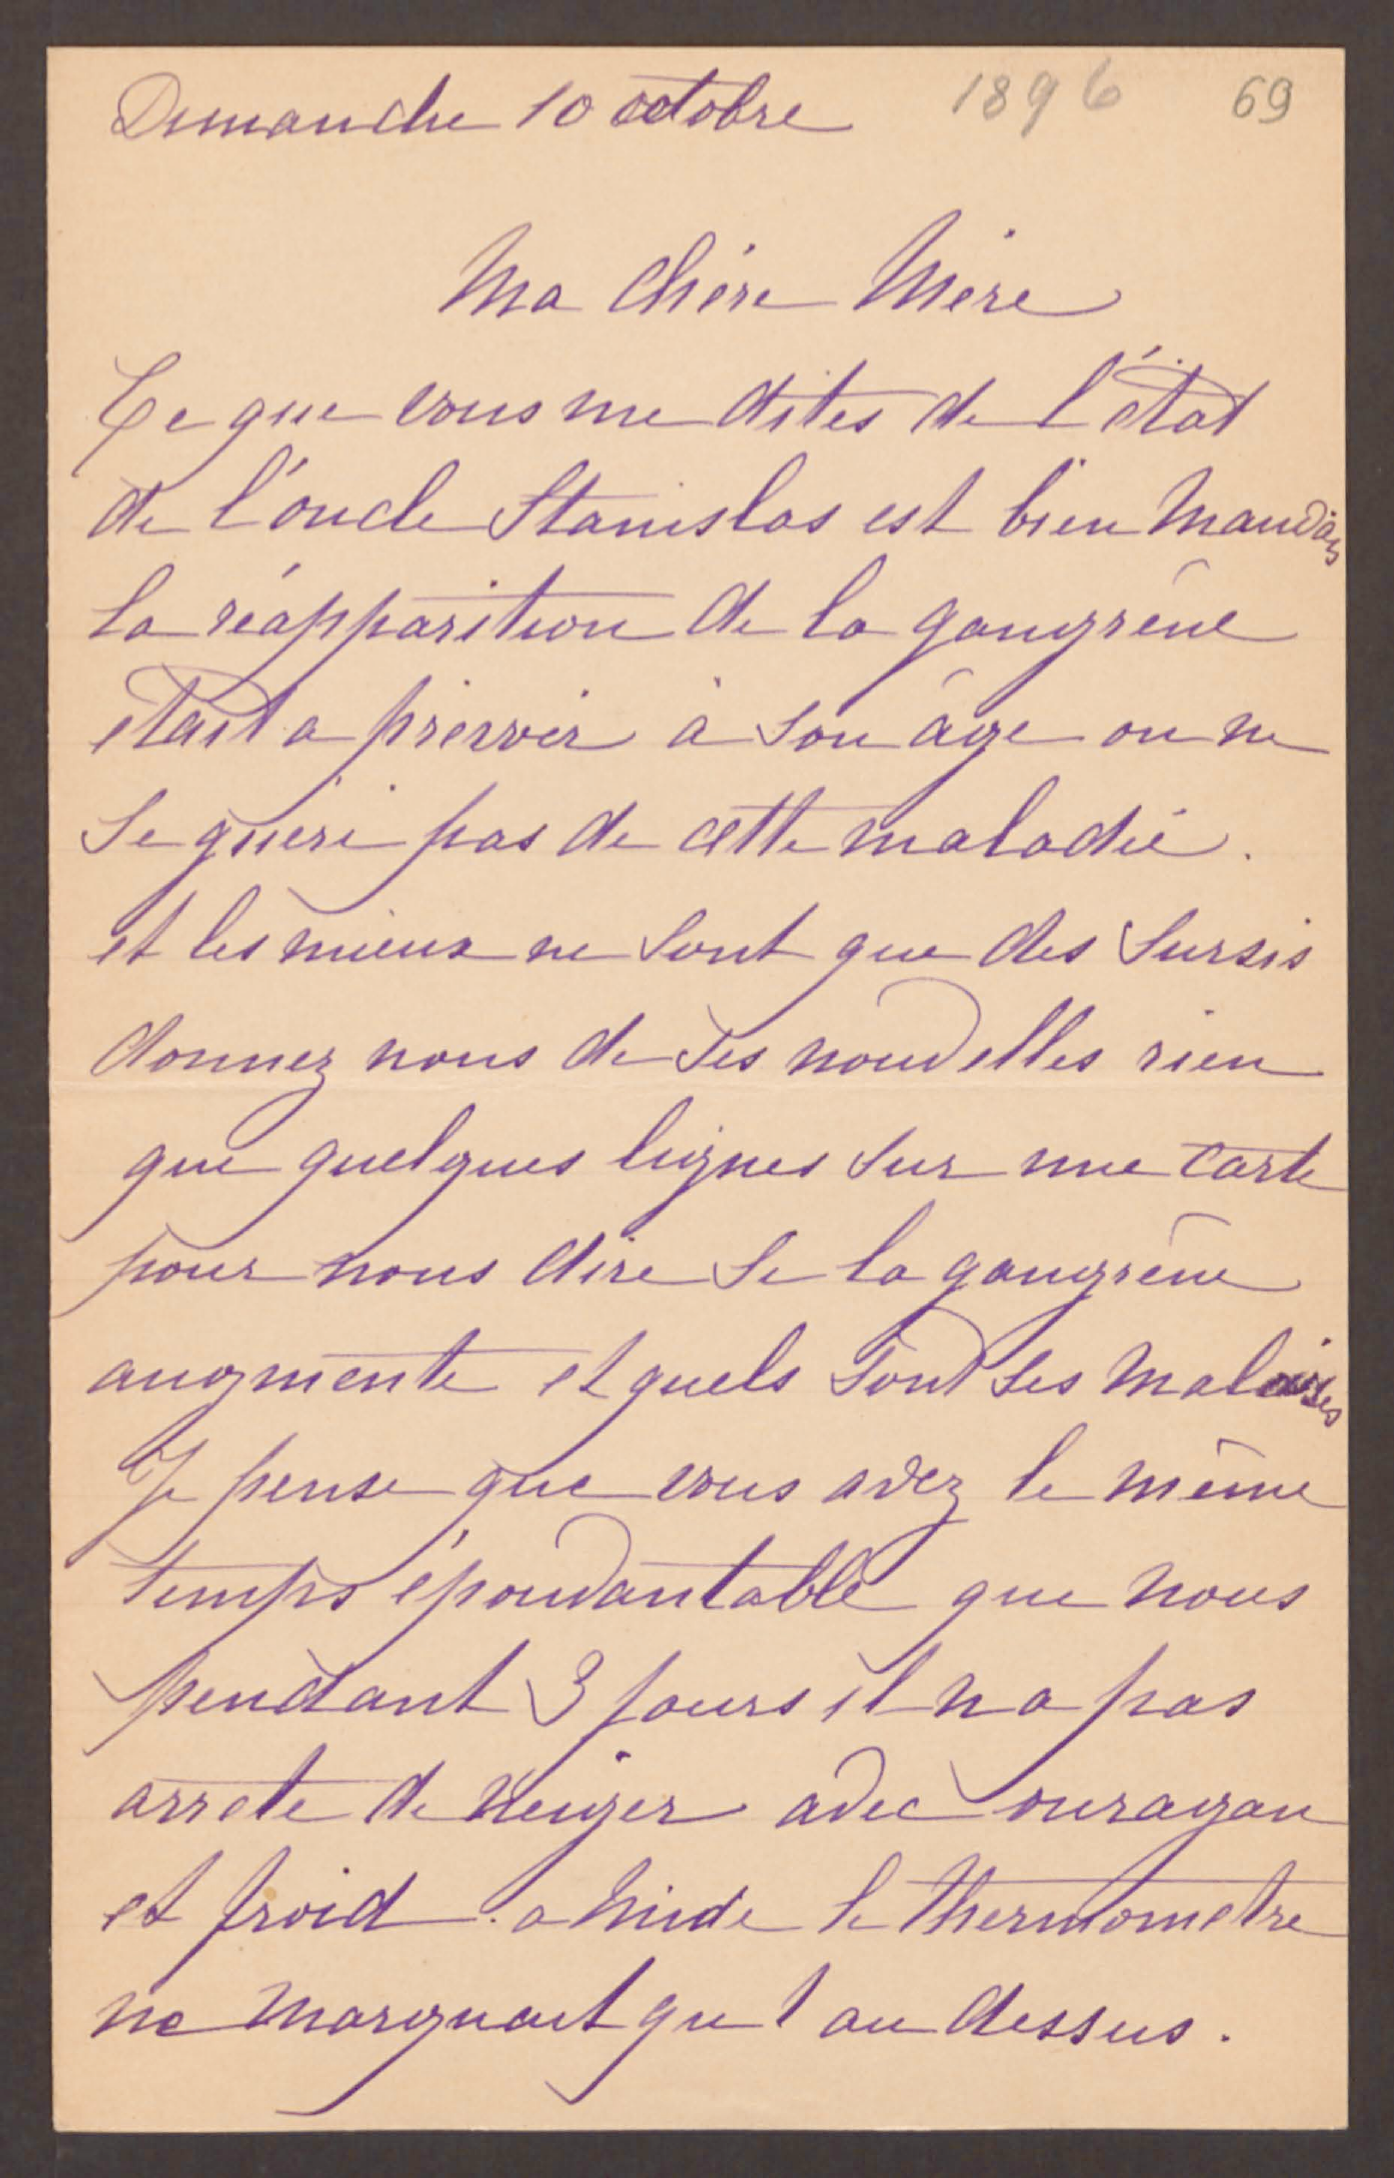 Dimanche 10 octobre 1896 69
Ma chère Mère
Ce que vous me dites de l'état
de l'oncle Stanislas est bien mauvais
la réapparition de la gangrène
était a prévoir à son âge on ne
se guéri pas de cette maladie.
et les mieux ne sont que des sursis
donnez nous de ses nouvelles rien
que quelques lignes sur une carte
pour nous dire si la gangrène
augmente et quels sont ses malaises
Je pense que vous avez le même
temps épouvantable que nous
pendant 3 jours il n a pas
arreté de neiger avec ouragan
et froid. a midi le thermometre
ne marquait qu 1 au dessus.